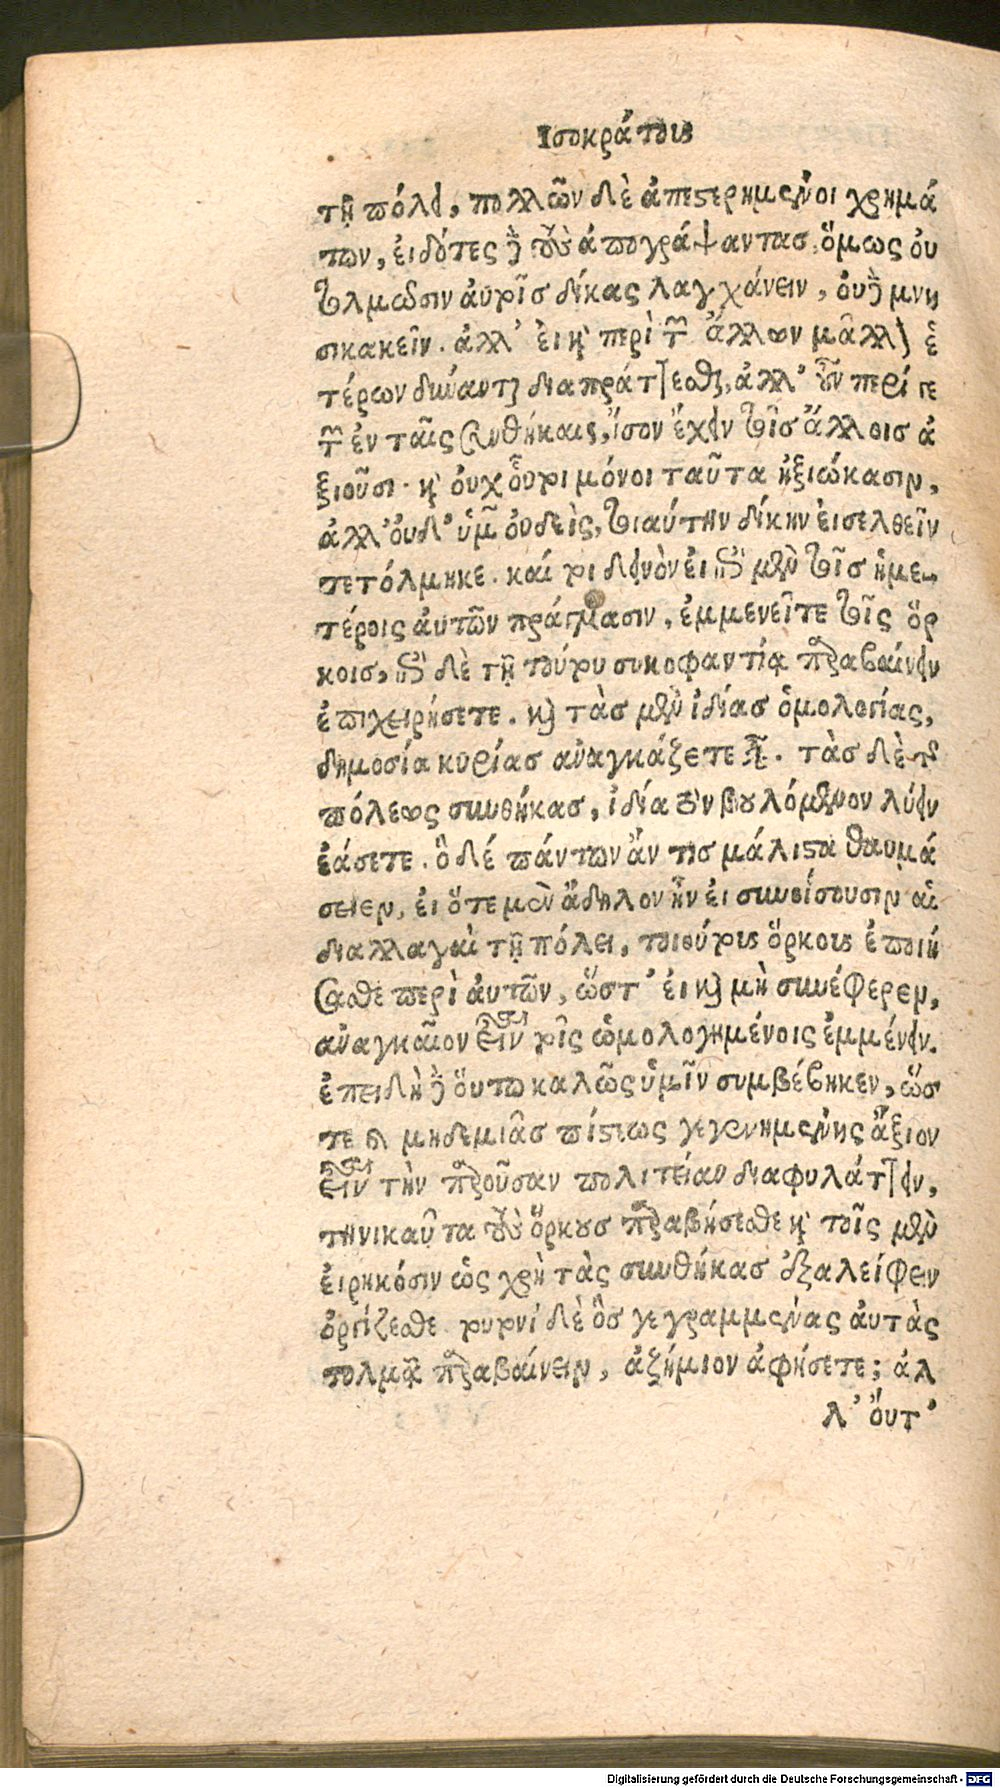 Ἰσοκράτους
τῇ πόλει, πολλῶν δὲ ἀπεστερημένοι χρημά
των, εἰδότες δὲ τοὺς ἀπογράψαντας, ὅμως οὐ
τολμῶσιν αὐτοῖς δίκας λαγχάνειν, οὐδὲ μνη
σικακεῖν. ἀλλ' εἰ καὶ περὶ τῶν ἄλλων μᾶλλον ἑ
τέρων δύνανται διαπράττεσθαι, ἀλλ' οὖν περί γε
τῶν ἐν ταῖς συνθήκαις, ἴσον ἔχειν τοῖς ἄλλοις ἀ
ξιοῦσι. καὶ οὐχ οὗτοι μόνοι ταῦτα ἠξιώκασιν,
ἀλλ' οὐδ' ὑμῶν οὐδεὶς, τοιαύτην δίκην εἰσελθεῖν
τετόλμηκε. καίτοι δεινὸν εἰ ἐν μὲν τοῖς ἡμε-
τέροις αὐτῶν πράγμασιν, ἐμμενεῖτε τοῖς ὅρ
κοις, ἐν δὲ τῇ τούτου συκοφαντίᾳ παραβαίνειν
ἐπιχειρήσετε. καὶ τὰς μὲν ἰδίας ὁμολογίας,
δημοσία κυρίας ἀναγκάζετε εἶναι. τὰς δὲ τῆς
πόλεως συνθήκας, ἰδία τὸν βουλόμενον λύειν
ἐάσετε. ὃ δέ πάντων ἄν τις μάλιστα θαυμά
σειεν, εἰ ὅτε μὲν ἄδηλον ἦν εἰ συνοίσουσιν αἱ
διαλλαγαὶ τῇ πόλει, τοιούτους ὅρκους ἐποιή
σασθε περὶ αὐτῶν, ὥστ' εἰ καὶ μὴ συνέφερεν,
ἀναγκαῖον εἶναι τοῖς ὡμολογημένοις ἐμμένειν.
ἐπειδὴ δὲ οὕτω καλῶς ὑμῖν συμβέβηκεν, ὥσ
τε καὶ μηδεμιᾶς πίστεως γεγενημένης ἄξιον
εἶναι τὴν παροῦσαν πολιτείαν διαφυλάττειν,
τηνικαῦτα τοὺς ὅρκους παραβήσεσθε καὶ τοῖς μὲν
εἰρηκόσιν ὡς χρὴ τὰς συνθήκας ἐξαλείφειν
ὀργίζεσθε τουτονὶ δὲ ὃς γεγραμμένας αὐτὰς
τολμᾷ παραβαίνειν, ἀζήμιον ἀφήσετε; ἀλ
λ' οὔτ'
Digitalisierung gefördert durch die Deutsche Forschungsgemeinschaft - DFG